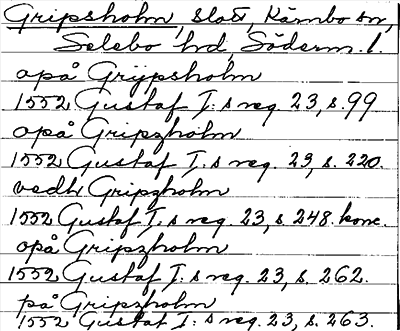 Gripsholm, slott, Kärnbo sn,
Selebo hd, Söderm. l.
opå Grijpsholm
1552 Gustaf I:s reg. 23, s. 99
opå Gripzholm
1552 Gustaf I:s reg. 23, s. 220.
vedh Gripzholm
1552 Gustaf I:s reg. 23, s. 248. konc.
opå Gripzholm
1552 Gustaf I:s reg. 23, s. 262.
på Gripzholm
1552 Gustaf I:s reg. 23, s. 263.